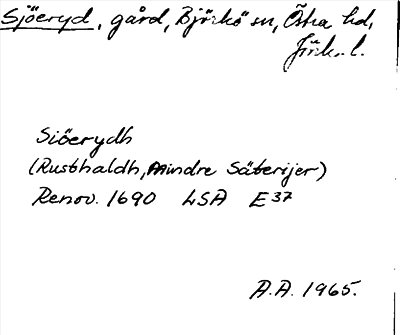 Sjöeryd, gård, Björkö sn, Östra hd,
Jönk. l.
Siöerydh
(Rusthaldh, mindre Säterijer)
Renov. 1690 LSA E 37
A.A. 1965.